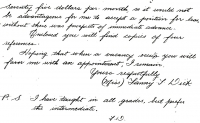 Seventy five dollars per month as it would not
be advantageous for me to accept a position for less
without there was prospects of immediate advance.
Enclosed you will find copies of four
references.
Hoping that when a vacancy occurs you will
favor me with an appointment, I remain
Yours respectfully
(Miss) Fanny L Dick
P. S. I have taught in all grades, but prefer
the intermediate.
F. D.